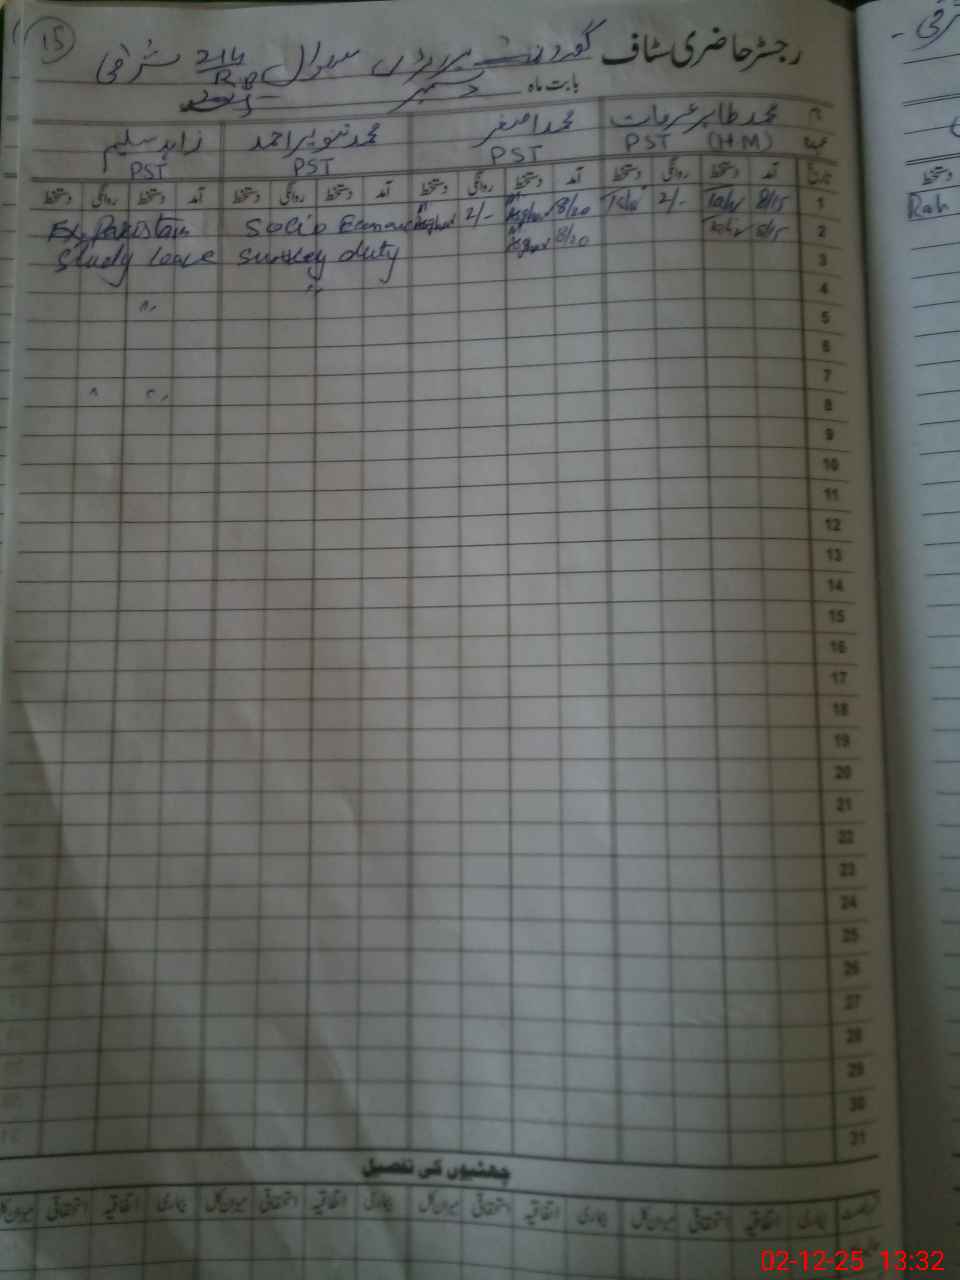 15
رجسٹر حاضری سٹاف گورنمنٹ 214 R.B شرقی
بابت ماہ دسمبر
نام محمد طاہر محمد اصغر محمد تنویر احمد زاہد سلیم
عہدہ PST (H.M) PST PST PST
تاریخ آمد دستخط روانگی دستخط آمد دستخط روانگی دستخط آمد دستخط روانگی دستخط آمد دستخط روانگی دستخط
1 8/15 Tahir 2/- Tahir 8/20 Asghar 2/- Asghar Socio Economic Ex. Pakistan
2 8/15 Tahir 8/20 Asghar Survey duty Study leave
3
4 "
5 "
6
7
8 " "
9
10
11
12
13
14
15
16
17
18
19
20
21
22
23
24
25
26
27
28
29
30
31
چھٹیوں کی تفصیل
بیماری اتفاقیہ استحقاقی میزان کل بیماری اتفاقیہ استحقاقی میزان کل بیماری اتفاقیہ استحقاقی میزان کل بیماری اتفاقیہ استحقاقی میزان کل
دستخط
Rah
02-12-25 13:32